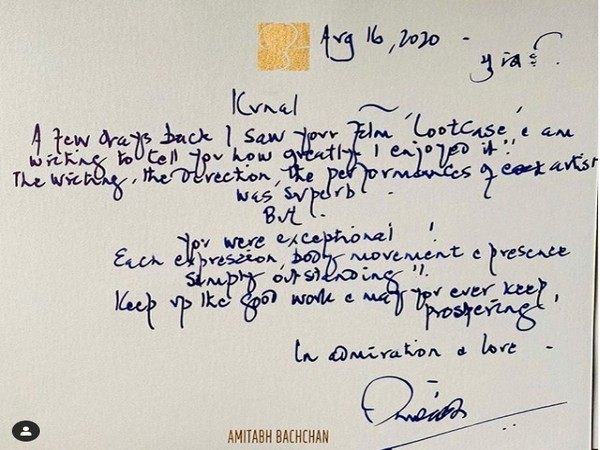 Aug 16, 2020 -
Kunal
A few days back I saw your film 'Lootcase' & am
writing to tell you how greatly I enjoyed it !!
The writing, the direction, the performances of each artist
was superb .
But .
you were exceptional !
Each expression, body movement & presence
simply outstanding !!
Keep up the good work & may you ever keep
prospering !
In admiration & love -
AMITABH BACHCHAN